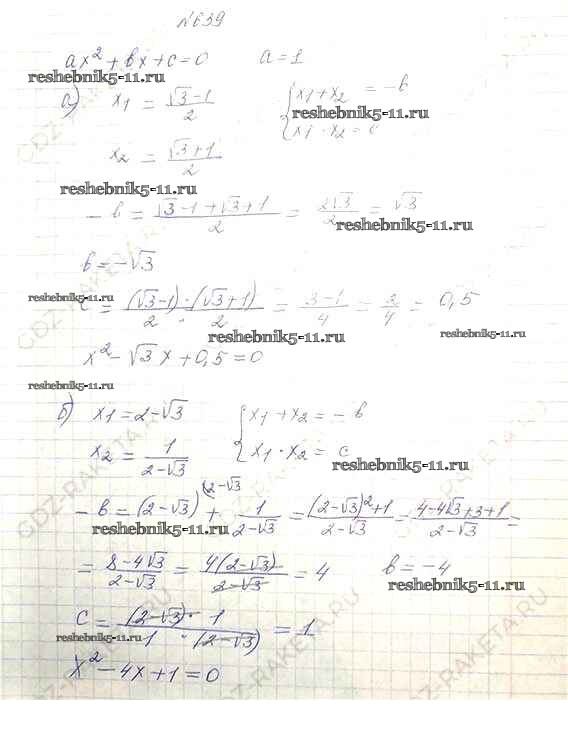 №639
ax² + bx + c = 0 a = 1
reshebnik5-11.ru
а) x₁ = (√3-1)/2 { x₁ + x₂ = -b
reshebnik5-11.ru
x₁ · x₂ = c
x₂ = (√3+1)/2
reshebnik5-11.ru
-b = (√3-1+√3+1)/2 = 2√3/2 = √3
reshebnik5-11.ru
b = -√3
reshebnik5-11.ru
c = (√3-1)·(√3+1)/2·2 = (3-1)/4 = 2/4 = 0,5
reshebnik5-11.ru
reshebnik5-11.ru
x² - √3 x + 0,5 = 0
reshebnik5-11.ru
б) x₁ = 2-√3 { x₁ + x₂ = -b
x₂ = 1/(2-√3) x₁ · x₂ = c
reshebnik5-11.ru
-b = (2-√3)^(2-√3 + 1/(2-√3) = ((2-√3)²+1)/(2-√3) = (4-4√3+3+1)/(2-√3) =
reshebnik5-11.ru
= (8-4√3)/(2-√3) = 4(2-√3)/(2-√3) = 4 b = -4
reshebnik5-11.ru
c = (2-√3)·1/1·(2-√3) = 1
reshebnik5-11.ru
x² - 4x + 1 = 0
GDZ-RAKETA.RU